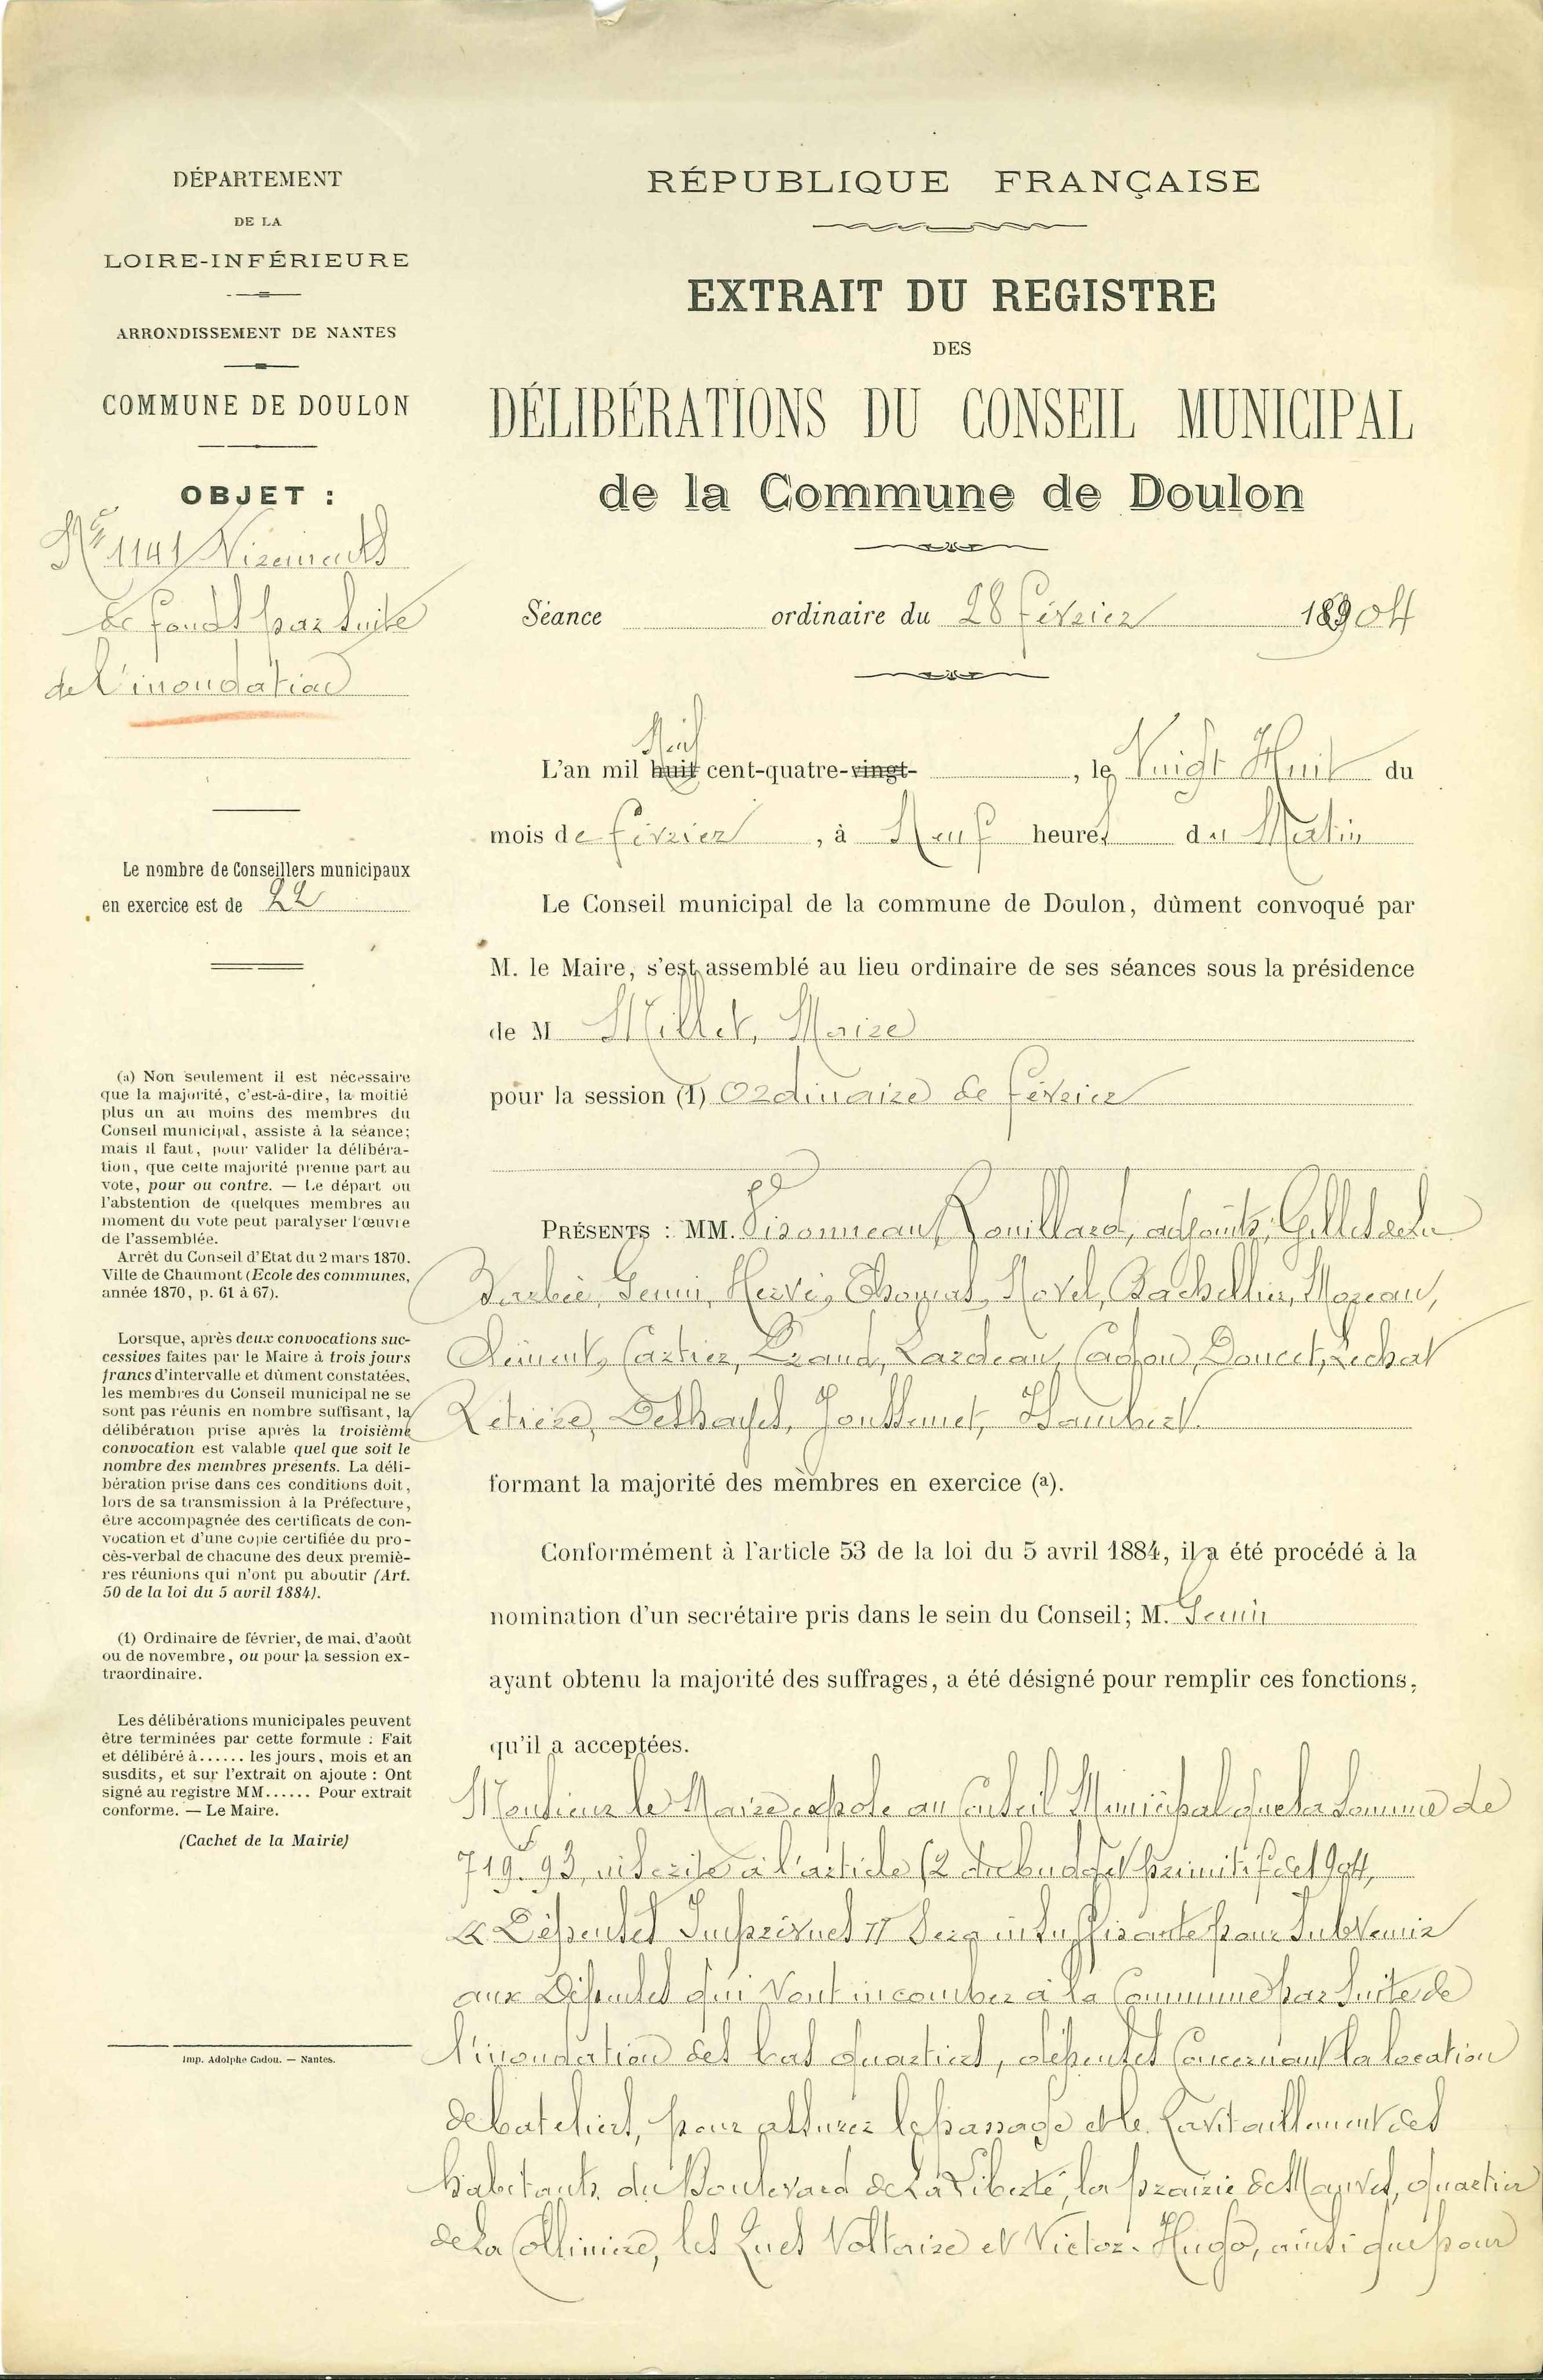 DÉPARTEMENT
DE LA
LOIRE-INFÉRIEURE
ARRONDISSEMENT DE NANTES
COMMUNE DE DOULON
OBJET :
Nº 1141 Virements
de fonds par suite
de l'inondation
Le nombre de Conseillers municipaux
en exercice est de 22
(a) Non seulement il est nécessaire
que la majorité, c'est-à-dire, la moitié
plus un au moins des membres du
Conseil municipal, assiste à la séance;
mais il faut, pour valider la délibéra-
tion, que cette majorité prenne part au
vote, pour ou contre. — Le départ ou
l'abstention de quelques membres au
moment du vote peut paralyser l'œuvre
de l'assemblée.
Arrêt du Conseil d'Etat du 2 mars 1870.
Ville de Chaumont (Ecole des communes,
année 1870, p. 61 à 67).
Lorsque, après deux convocations suc-
cessives faites par le Maire à trois jours
francs d'intervalle et dûment constatées,
les membres du Conseil municipal ne se
sont pas réunis en nombre suffisant, la
délibération prise après la troisième
convocation est valable quel que soit le
nombre des membres présents. La déli-
bération prise dans ces conditions doit,
lors de sa transmission à la Préfecture,
être accompagnée des certificats de con-
vocation et d'une copie certifiée du pro-
cès-verbal de chacune des deux premiè-
res réunions qui n'ont pu aboutir (Art.
50 de la loi du 5 avril 1884).
(1) Ordinaire de février, de mai, d'août
ou de novembre, ou pour la session ex-
traordinaire.
Les délibérations municipales peuvent
être terminées par cette formule : Fait
et délibéré à...... les jours, mois et an
susdits, et sur l'extrait on ajoute : Ont
signé au registre MM...... Pour extrait
conforme. — Le Maire.
(Cachet de la Mairie)
Imp. Adolphe Cadou. — Nantes.
RÉPUBLIQUE FRANÇAISE
EXTRAIT DU REGISTRE
DES
DÉLIBÉRATIONS DU CONSEIL MUNICIPAL
de la Commune de Doulon
Séance ordinaire du 28 février 1904
Neuf
L'an mil huit cent-quatre-vingt- , le Vingt Huit du
mois de février , à Neuf heures du Matin
Le Conseil municipal de la commune de Doulon, dûment convoqué par
M. le Maire, s'est assemblé au lieu ordinaire de ses séances sous la présidence
de M Millet, Maire
pour la session (1) Ordinaire de février
PRÉSENTS : MM. Pironneau, Rouillard, adjoints,
Genin, Hervé, Thomas, Morel, Bachellier, Mozeau,
Clément, Cartier, Lardeau, Doucet, Lechat
Letière, Deshayes, Joussemet, Hambert.
formant la majorité des membres en exercice (a).
Conformément à l'article 53 de la loi du 5 avril 1884, il a été procédé à la
nomination d'un secrétaire pris dans le sein du Conseil; M. Genin
ayant obtenu la majorité des suffrages, a été désigné pour remplir ces fonctions,
qu'il a acceptées.
Monsieur le Maire expose au Conseil Municipal que la somme de
719f 93, inscrite à l'article 62 du budget primitif de 1904,
« Dépenses Imprévues » sera insuffisante pour subvenir
aux Dépenses qui vont incomber à la Commune par suite de
l'inondation des bas quartiers, dépenses concernant la location
de bateliers, pour assurer le passage et le Ravitaillement des
habitants du Boulevard de La Liberté, la prairie de Mauves, quartier
de La Collinière, les Rues Voltaire et Victor-Hugo, ainsi que pour